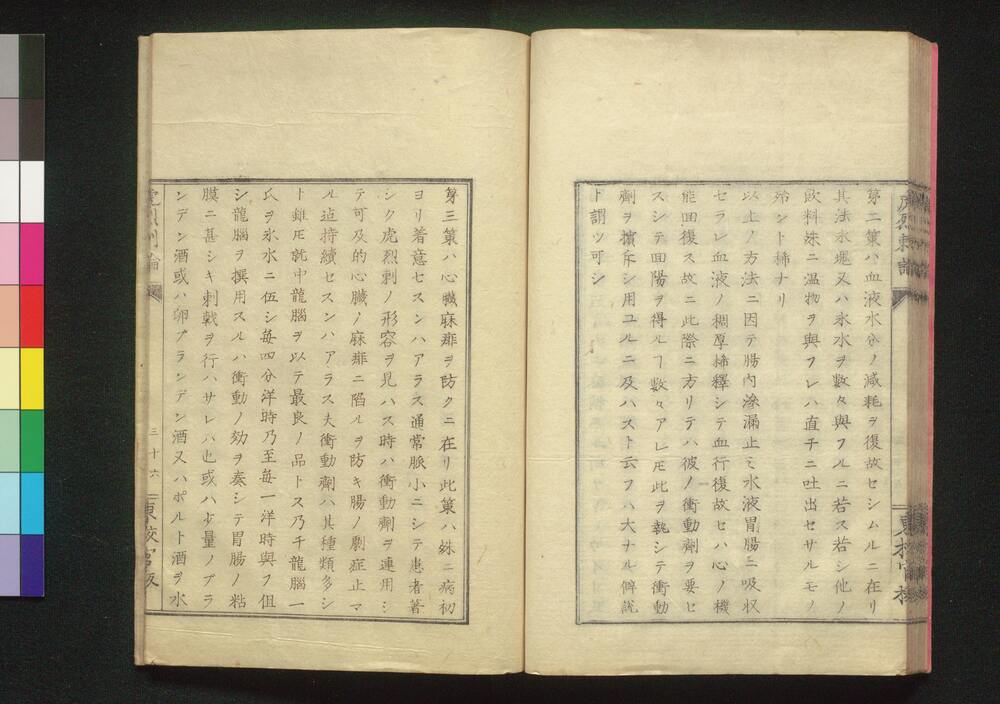 第二策ハ血液水分ノ減耗ヲ復故セシムルニ在リ
其法氷塊又ハ氷水ヲ數々與フルニ若ス若シ他ノ
飲料殊ニ温物ヲ與フレハ直チニ吐出セサルモノ
殆ント稀ナリ
以上ノ方法ニ因テ腸内滲漏止ミ水液胃腸ニ吸収
セラレ血液ノ稠厚稀釋シテ血行復故セハ心ノ機
能回復ス故ニ此際ニ方リテハ彼ノ衝動劑ヲ要セ
スシテ回陽ヲ得ルヿ數々アレ𪜈此ヲ執シテ衝動
劑ヲ擯斥シ用ユルニ及ハスト云フハ大ナル僻説
ト謂ツ可シ
第三策ハ心臓麻痺ヲ防クニ在リ此策ハ殊ニ病初
ヨリ着意セスンハアラス通常脈小ニシテ患者著
シク虎烈剌ノ形容ヲ見ハス時ハ衝動劑ヲ連用シ
テ可及的心臓ノ麻痺ニ陷ルヲ防キ腸ノ劇症止マ
ル迠持續セスンハアラス夫衝動劑ハ其種類多シ
ト雖𪜈就中龍腦ヲ以テ最良ノ品トス乃チ龍腦一
氏ヲ氷水ニ伍シ毎四分洋時乃至毎一洋時與フ但
シ龍腦ヲ撰用スルハ衝動ノ効ヲ奏シテ胃腸ノ粘
膜ニ甚シキ刺戟ヲ行ハサレハ也或ハ少量ノブラ
ンデン酒或ハ卵ブランデン酒又ハポルト酒ヲ水
三十六